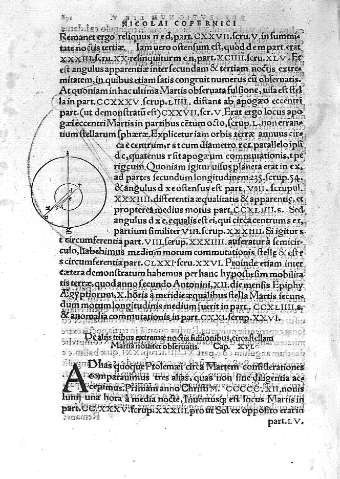 NICOLAI COPERNICI
Remanet ergo reliquus n e d, part. CXXVII. scru. V, in summi
tate noctis tertiæ. Iam uero ostensum est, quod d e m part erat
XXXIII. scr. XX relinquitur m e n, part. XCIIII. scru. XLV. Et
est angulus apparentiæ inter secundam & tertiam noctis extre
mitatem, in quibus etiam satis congruit numerus est obseruatis.
At quoniam in hac ultima Martis obseruata fulsione, uisa est stel
la in part. CCXXXV. scrup. LIIII. distans ab apogæo eccentri
part. (ut demonstratū est) CXXVII. scr. V. Erat ergo locus apo
gæi eccentri Martis in partibus centum octo, scrup. L. non erran-
tium stellarum sphæræ. Explicetur iam orbis terræ annuus cir
ca e centrum, r s t cum diametro r e t, parallelo ipsi
d c, quatenus r sit apogæum commutationis, t pe
rigæum. Quoniam igitur uisus planetæ erat in e x,
ad partes secundum longitudinem 235, scrup. 54,
& angulus d x e ostensus est part. VIII. scrupul.
XXXIIII. differentia æqualitatis & apparentiæ, et
propterea medius motus part. CCXLIIII. s. Sed
angulus d x e, æqualis est ei, qui circa centrum s e t,
partium similiter VIII. scrup. XXXIIII. Si igitur s
t circumferentia part. VIII. scrup. XXXIIII. auferatur à semicir
culo, habebimus medium motum commutationis stellæ & est r
s circumferentia part. CLXXI. scru. XXVI. Proinde etiam inter
cætera demonstratum habemus per hanc hypothesim mobilita
tis terræ, quod anno secundo Antonini, XII. die mensis Epiphy
Ægyptiorum, X. horis à meridie æqualibus stella Martis secun
dum motum longitudinis medium, fuerit in part. CCXLIIII. s.
& anomalia commutationis in part. CLXXI. scrup. XXVI.
De alijs tribus extremæ noctis fulsionibus, circa stellam
Martis nouiter obseruatis. Cap. XVI.
AD has quoque Ptolemæi circa Martem considerationes
comparauimus tres alias, quas non sine diligentia ac
cepimus. Primam anno Christi M. CCCCC. XII. nonis
Iunij una hora à media nocte, Inuentusq; est locus Martis in
part. CC.XXXV. scrup. XXXIII. prout Sol ex opposito erat in
part. LV.